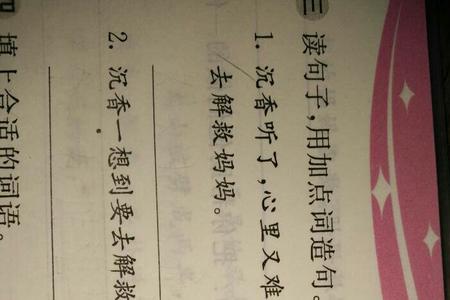 三 读句子，用加点词造句。
1. 沉香听了，心里又难
去解救妈妈。
2. 沉香一想到要去解救
四 填上合适的词语。